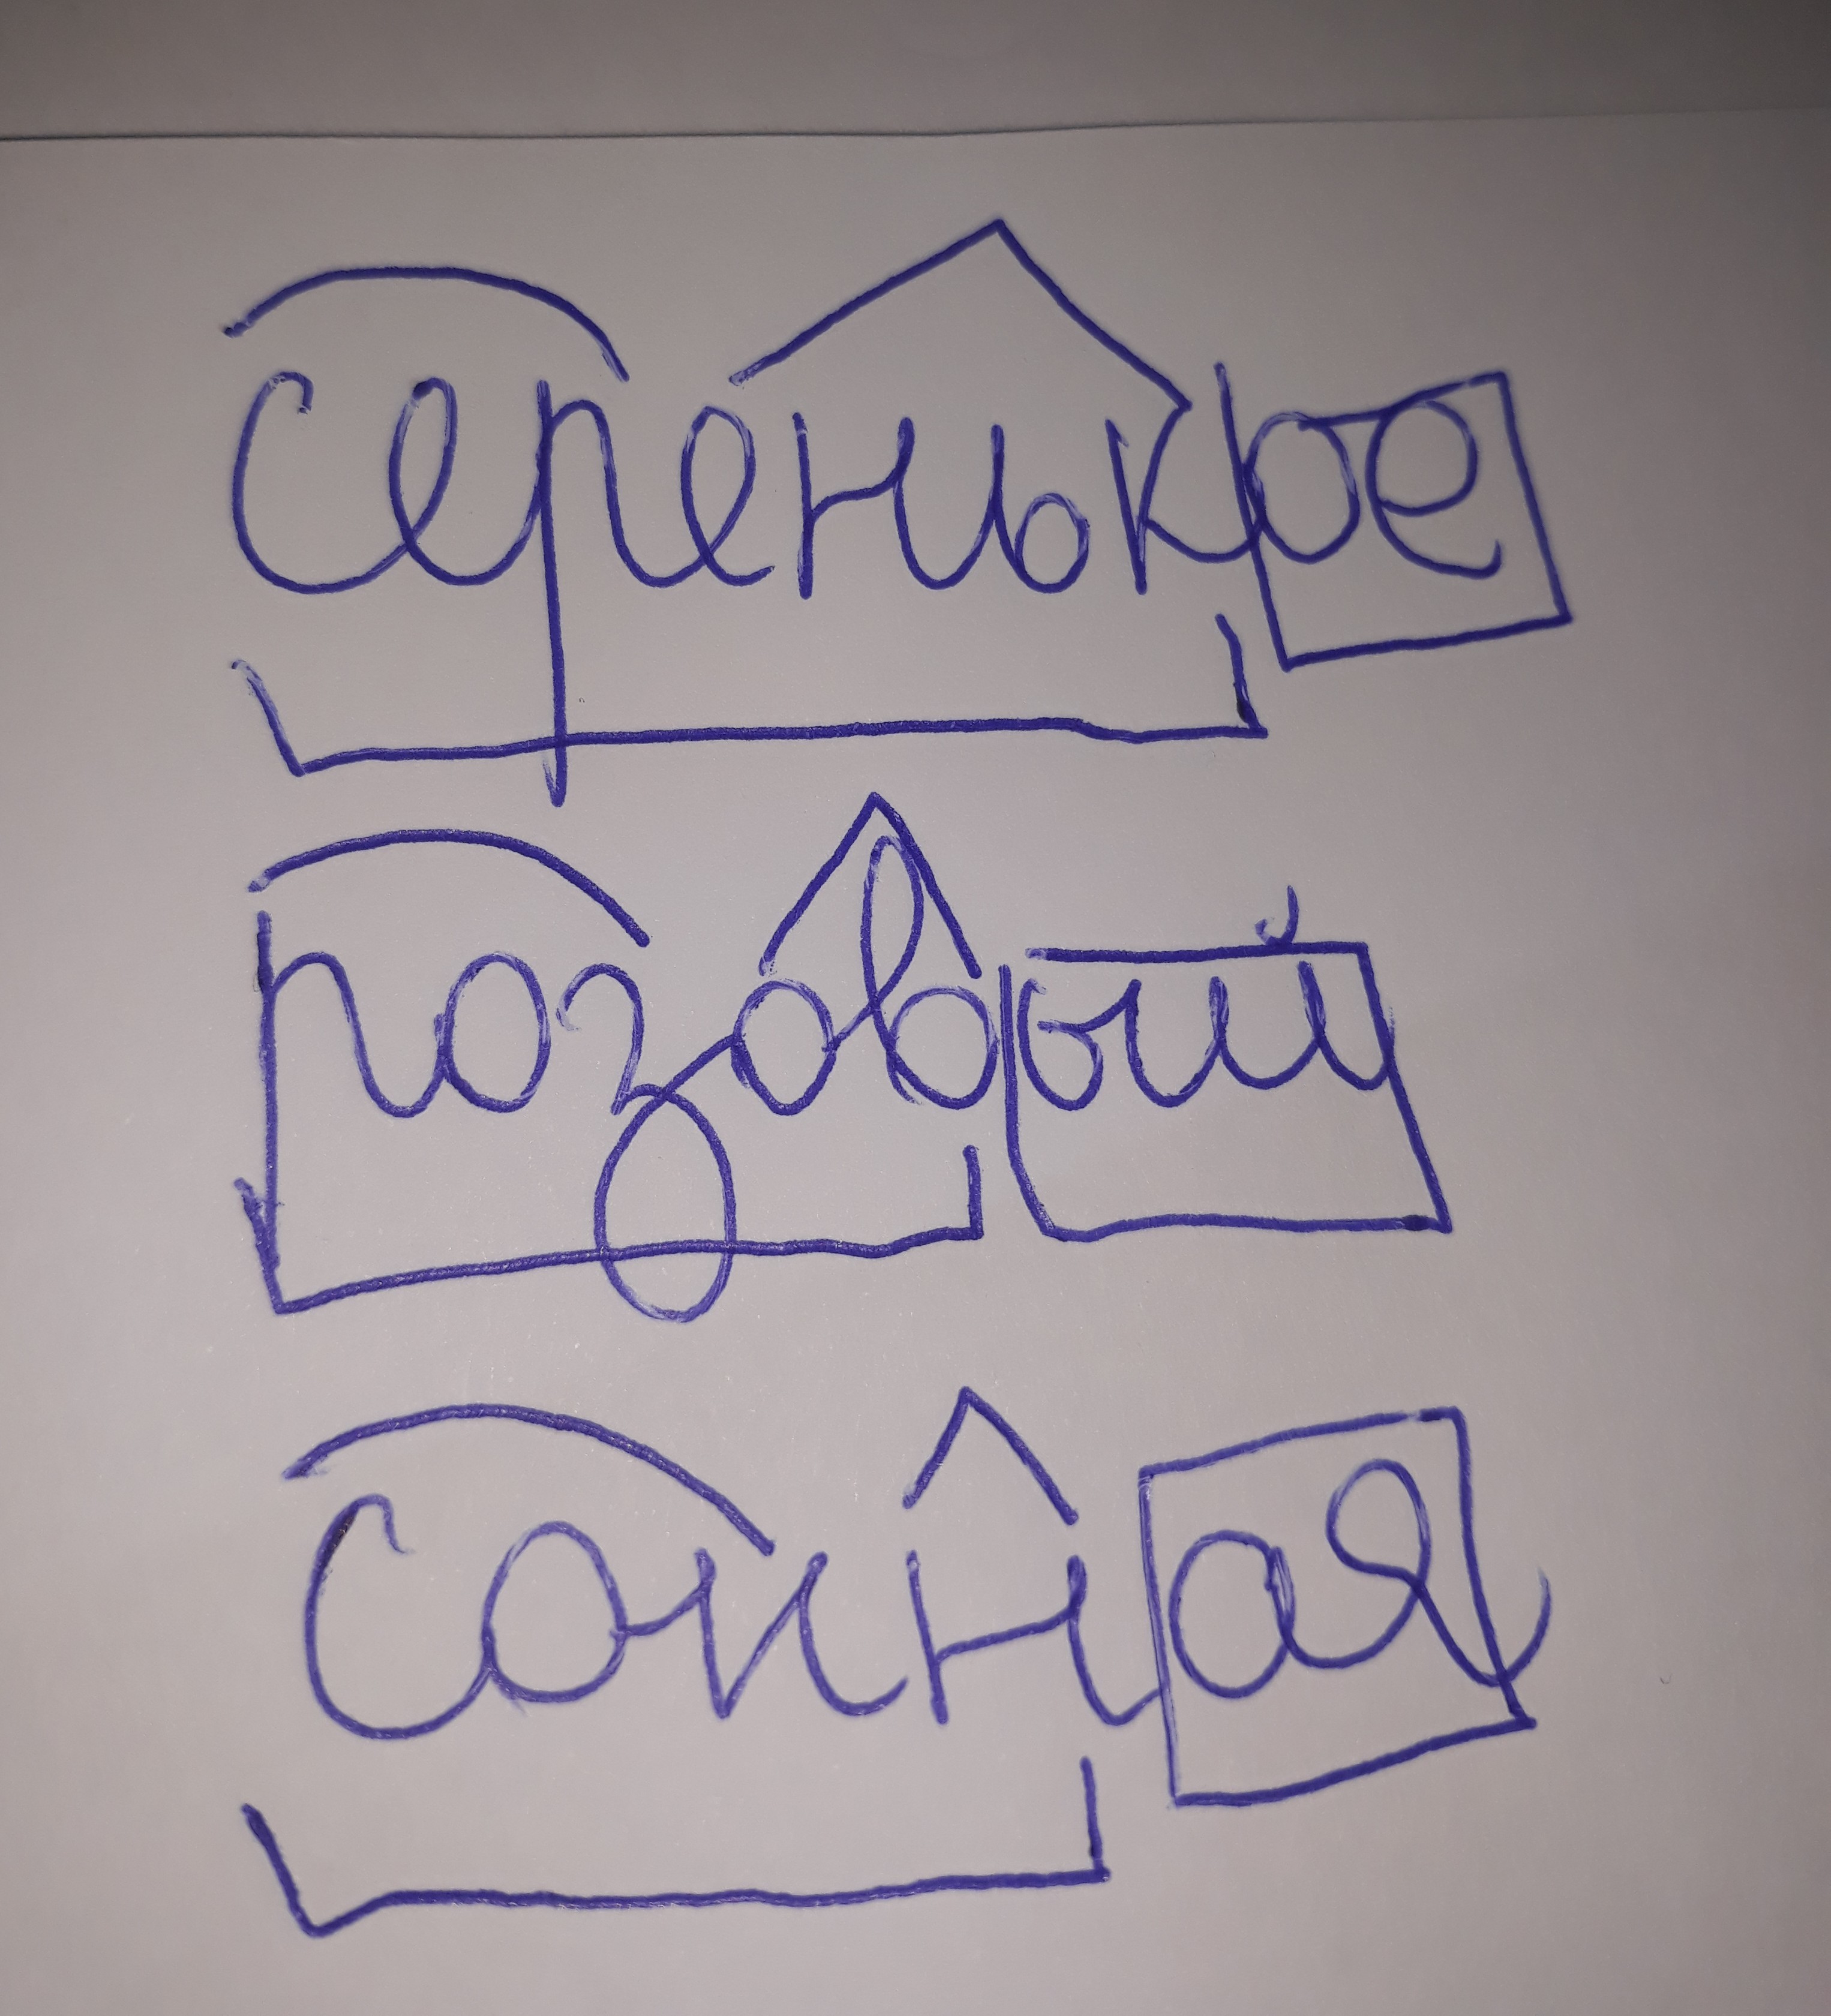 серенькое
розовый
сонная